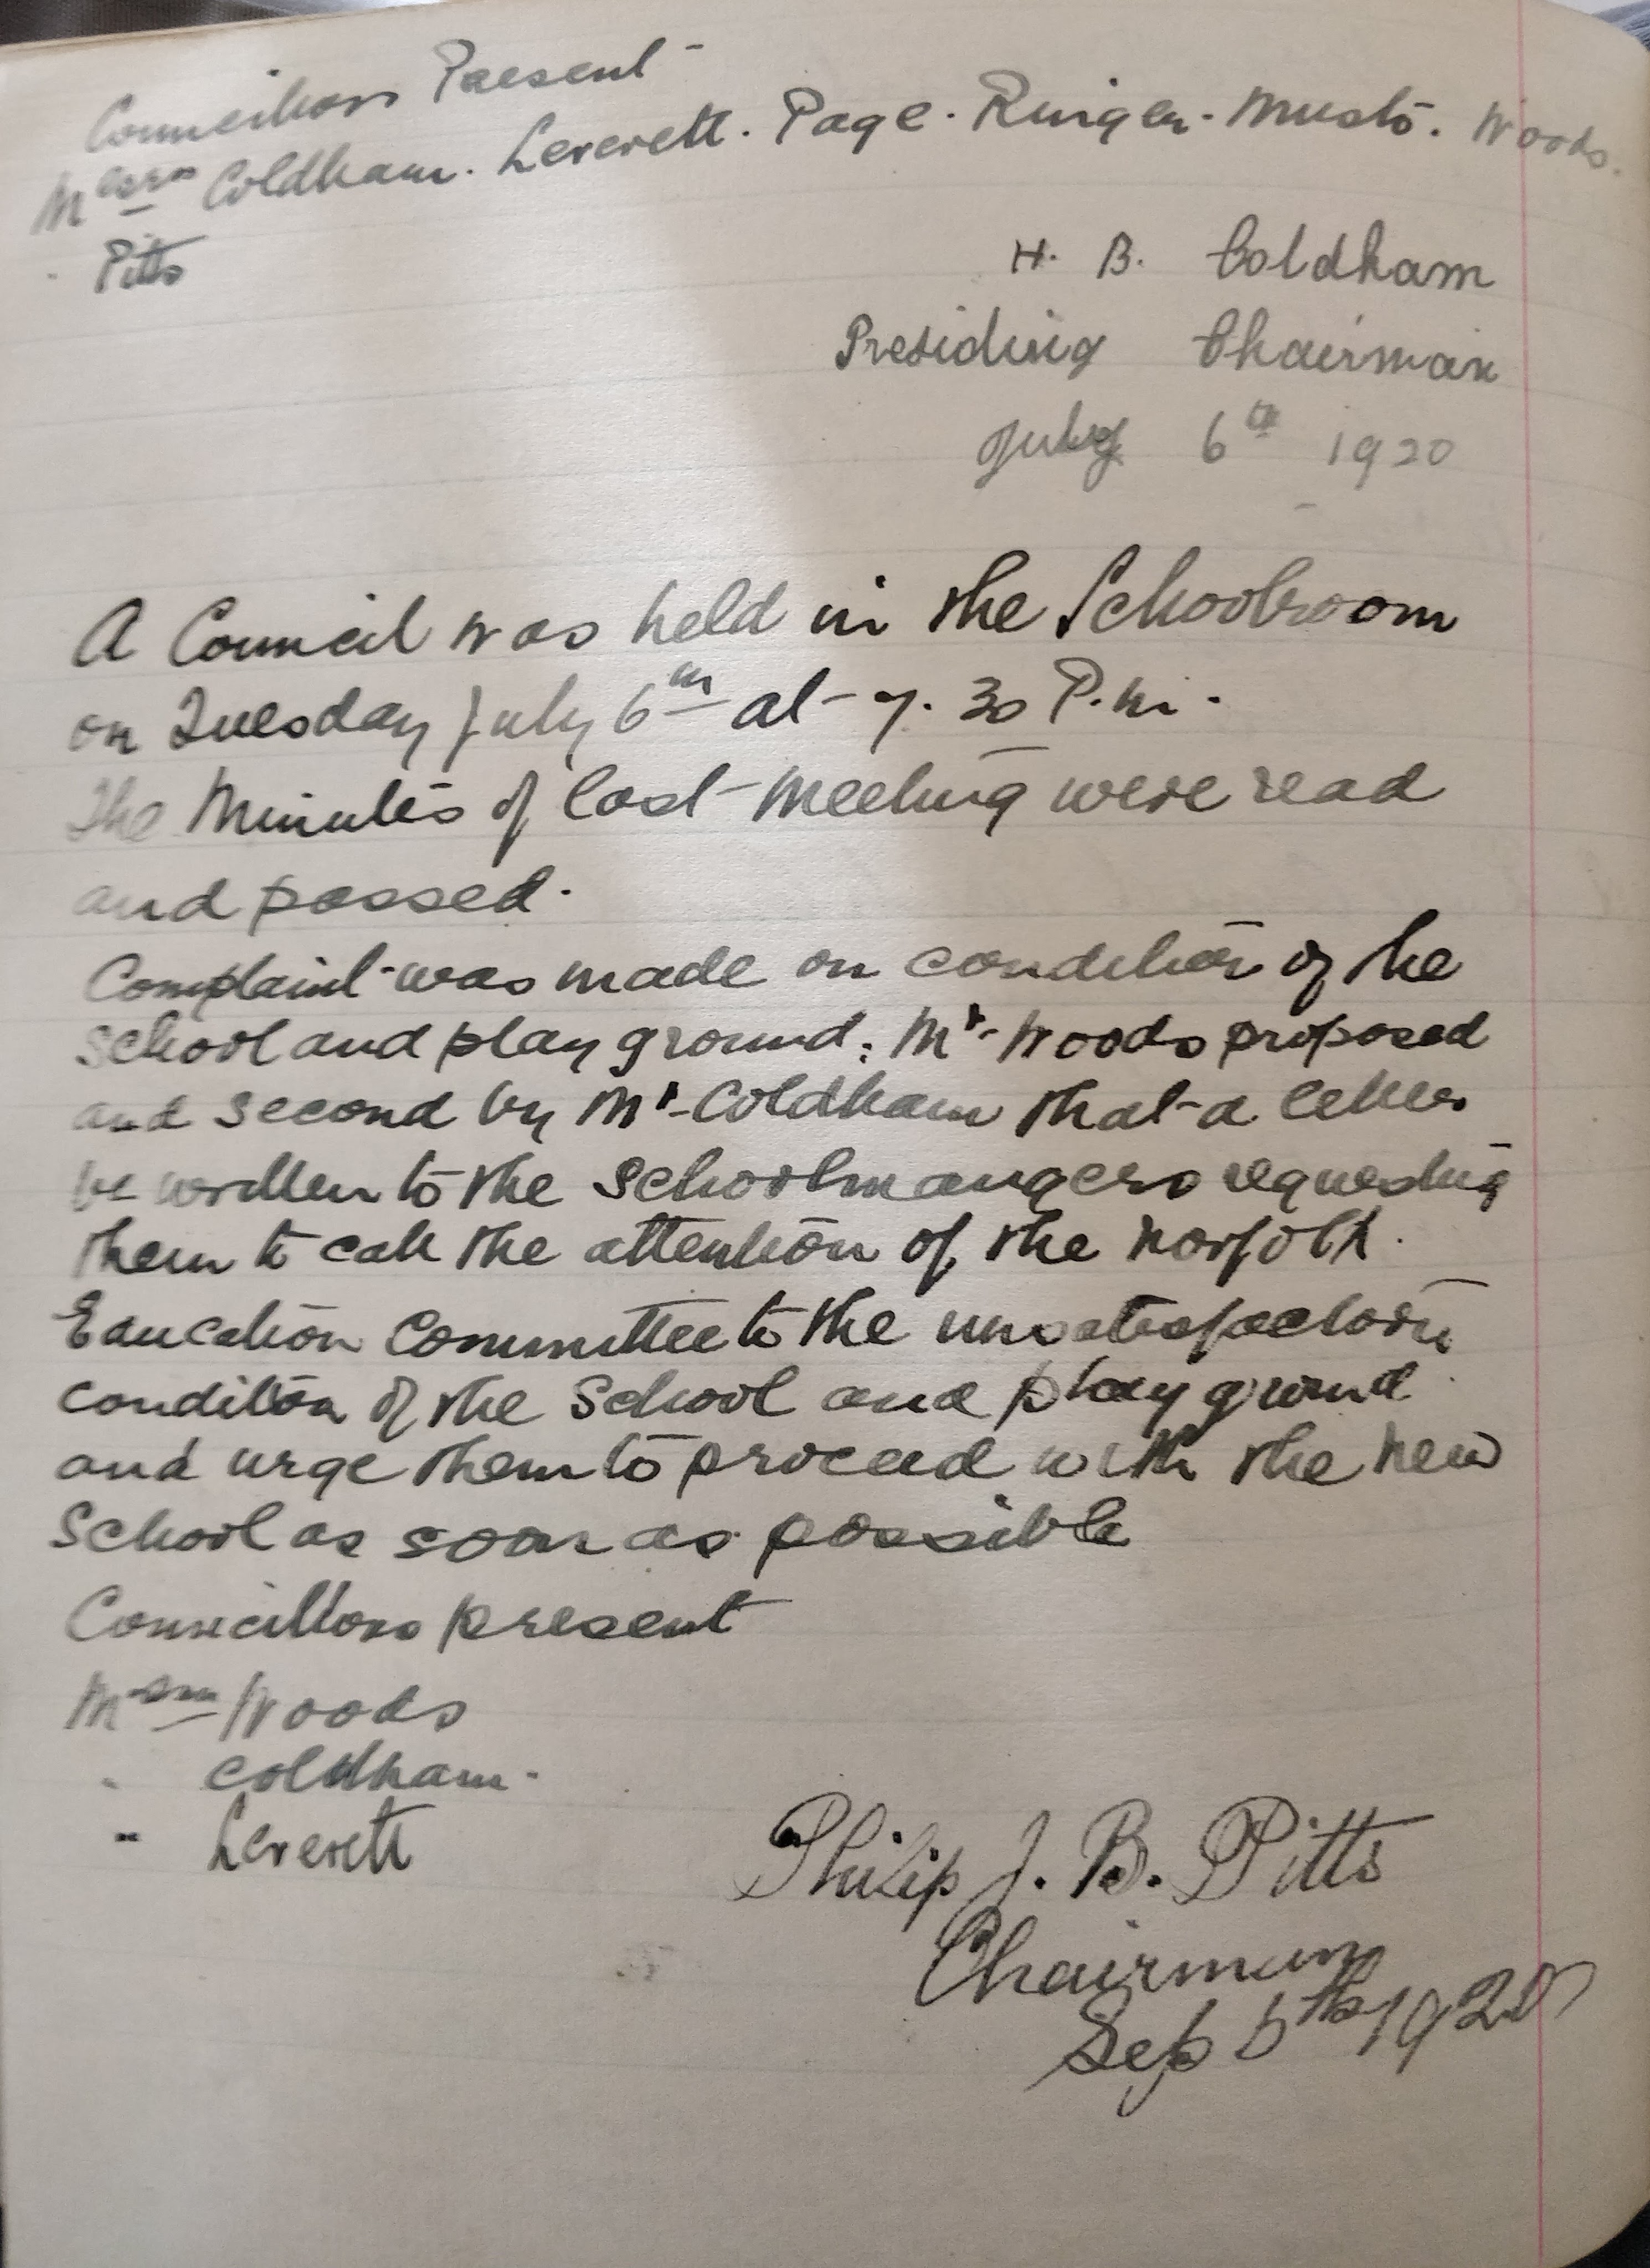 Councillors Present -
Messrs Coldham. Leverett. Page. Ringer. Musto. Woods.
" Pitts
H. B. Coldham
Presiding Chairman
July 6th 1920
A Council was held in the Schoolroom
on Tuesday July 6th at 7. 30 P.m.
The Minutes of last meeting were read
and passed.
Complaint was made on condition of the
School and play ground: Mr Woods proposed
and second by Mr Coldham that a letter
be written to the School mangers requesting
them to call the attention of the Norfolk
Education Committee to the unsatisfactory
condition of the School and play ground
and urge them to proceed with the new
School as soon as possible
Councillors present
Messrs Woods
" Coldham.
" Leverett
Philip J. B. Pitts
Chairman
Sep 1920